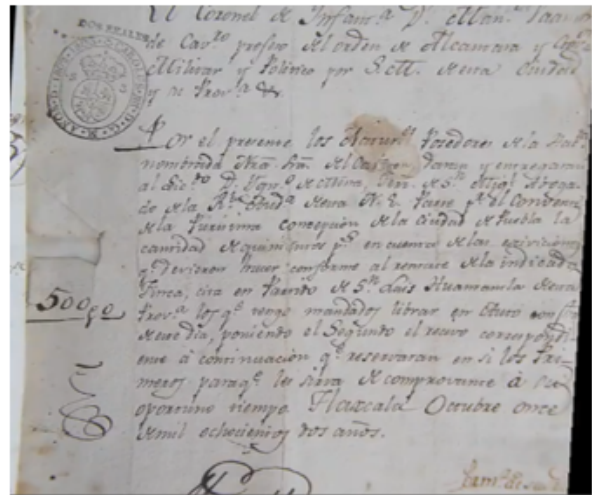 DOS REALES
El Coronel de Infan.ª D.
de Cav.ro del orden de Alcantara y
Militar y Politico por S. M. de esta Ciudad
y su Prov.ª &
Por el presente los Poseedores de la
nombrada Ntrâ Srâ. del Carmen daran y entregaran
al D. de Sn. Aboga-
do de la Rl. Aud.ª de esta N. E. p.r el Convento
de la Purisima Concepcion de la Ciudad de Puebla la
cantidad de quinientos p.s en cuenta de las exiviciones
q.e devieron hacer conforme al remate de la indicada
Finca, cita en Partido de Sn. Luis Huamantla de esta
Prov.ª los q.e tengo mandados librar en
de este dia, poniendo el Segundo el recivo correspondi-
ente á continuacion q.e reservaran en si los Pri-
meros paraq.e les sirva de comprovante á su
oportuno tiempo. Tlaxcala Octubre once
de mil ochocientos dos años.
500 p.s